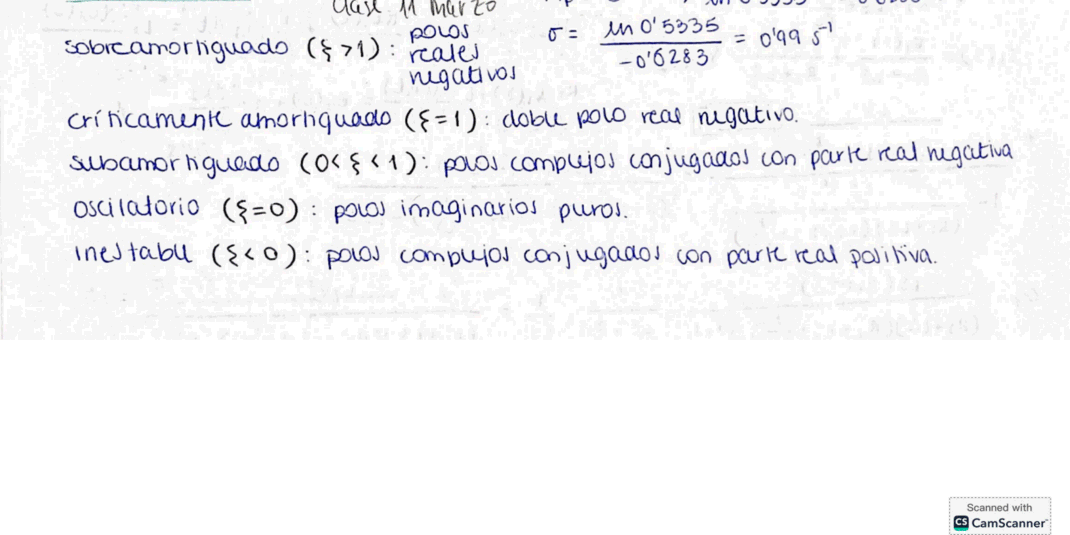 clase 11 marzo
sobreamortiguado (ξ >1) : polos reales negativos
σ = ln 0'5335 / -0'6283 = 0'99 s⁻¹
críticamente amortiguado (ξ=1) : doble polo real negativo.
subamortiguado (0< ξ <1) : polos complejos conjugados con parte real negativa
oscilatorio (ξ=0) : polos imaginarios puros.
inestable (ξ<0) : polos complejos conjugados con parte real positiva.
Scanned with
CS CamScanner